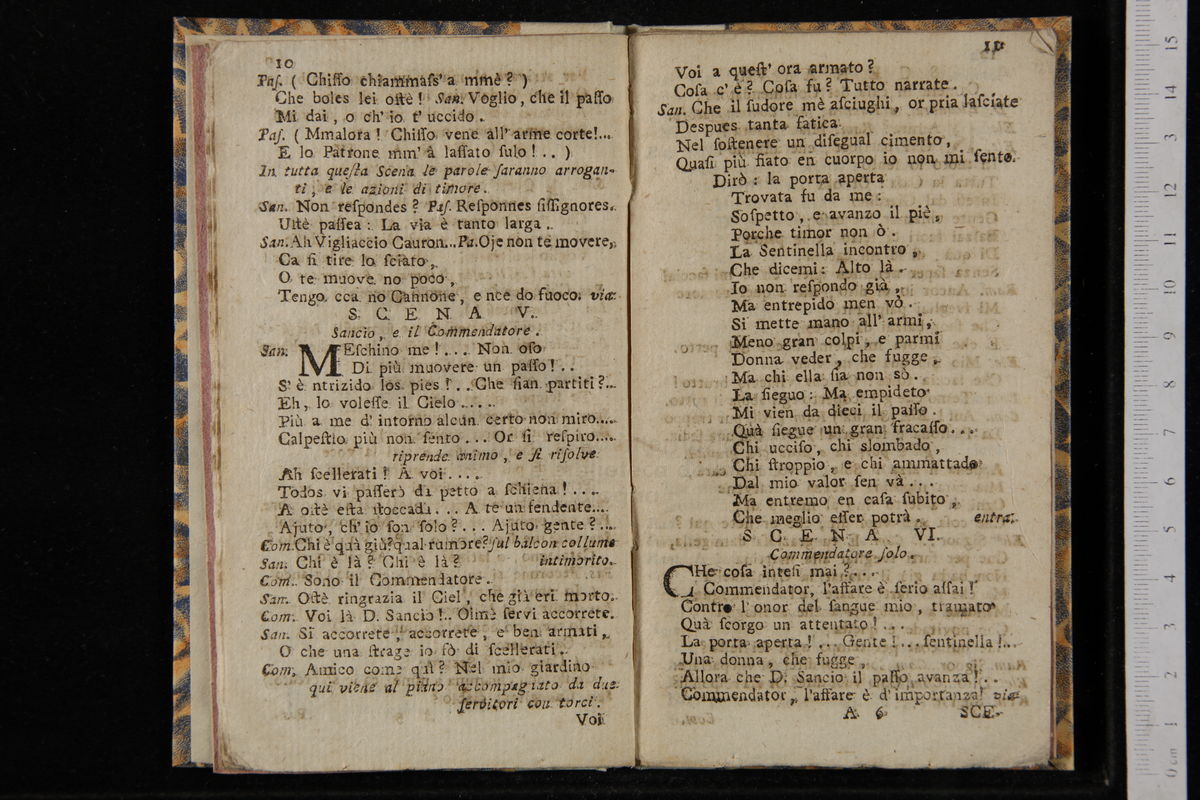 10
Paſ. ( Chiſſo chiammaſs' a mmè ? )
Che boles lei oſtè ! San. Voglio, che il paſſo
Mi dai , o ch' io t' uccido .
Paſ. ( Mmalora ! Chiſſo vene all' arme corte!...
E lo Patrone mm' à laſſato ſulo ! . . )
In tutta queſta Scena le parole ſaranno arrogan-
ti , e le azioni di timore .
San. Non reſpondes ? Paſ. Reſponnes ſiſſignores.
Uſtè paſſea : La via è tanto larga .
San. Ah Vigliaccio Cauron...Pa.Oje non te movere,
Ca ſi tire lo ſciato ,
O te muove no poco ,
Tengo cca no Cannone , e nce do fuoco. via.
S C E N A V.
Sancio , e il Commendatore .
San. MEſchino me ! . . . Non oſo
Di più muovere un paſſo ! . .
S' è ntrizido los pies ! . . Che ſian partiti ?...
Eh , lo voleſſe il Cielo . . . . .
Più a me d' intorno alcun certo non miro.....
Calpeſtio più non ſento . . . Or ſi reſpiro.....
riprende animo , e ſi riſolve
Ah ſcellerati ! A voi . . . .
Todos vi paſſerò da petto a ſchiena ! . . . .
A oſtè eſta ſtoccada . . . A te un fendente....
Ajuto , ch' io ſon ſolo ? . . . Ajuto gente ? ....
Com.Chi è quà giù?qual rumore?ſul balcon col lume
San. Chi è là ? Chi è là ? intimorito.
Com. Sono il Commendatore .
San. Oſtè ringrazia il Ciel , che già eri morto.
Com. Voi là D. Sancio !.. Olmè ſervi accorrete.
San. Si accorrete , accorrete , e ben armati ,
O che una ſtrage io fò di ſcellerati .
Com. Amico come quì ? Nel mio giardino
qui viene al piano accompagnato da due
ſervitori con torci .
Voi
11
Voi a queſt' ora armato ?
Coſa c' è ? Coſa fu ? Tutto narrate .
San. Che il ſudore mè aſciughi , or pria laſciate
Deſpues tanta fatica
Nel ſoſtenere un diſegual cimento ,
Quaſi più fiato en cuorpo io non mi ſento.
Dirò : la porta aperta
Trovata fu da me :
Soſpetto , e avanzo il piè ,
Porche timor non ò .
La Sentinella incontro ,
Che dicemi : Alto là .
Io non reſpondo già ,
Ma entrepido men vò .
Si mette mano all' armi ,
Meno gran colpi , e parmi
Donna veder , che fugge ,
Ma chi ella ſia non sò .
La ſieguo : Ma empideto
Mi vien da dieci il paſſo .
Quà ſiegue un gran fracaſſo . . .
Chi ucciſo , chi slombado ,
Chi ſtroppio , e chi ammattado
Dal mio valor ſen và . . .
Ma entremo en caſa ſubito ,
Che meglio eſſer potrà . entra.
S C E N A VI.
Commendatore ſolo .
CHe coſa inteſi mai ? . . .
Commendator, l'affare è ſerio aſſai !
Contro l' onor del ſangue mio , tramato
Quà ſcorgo un attentato ! . . .
La porta aperta ! ... Gente ! ... ſentinella !...
Una donna , che fugge ,
Allora che D. Sancio il paſſo avanza ! . .
Commendator , l'affare è d' importanza! via
A 6 SCE-